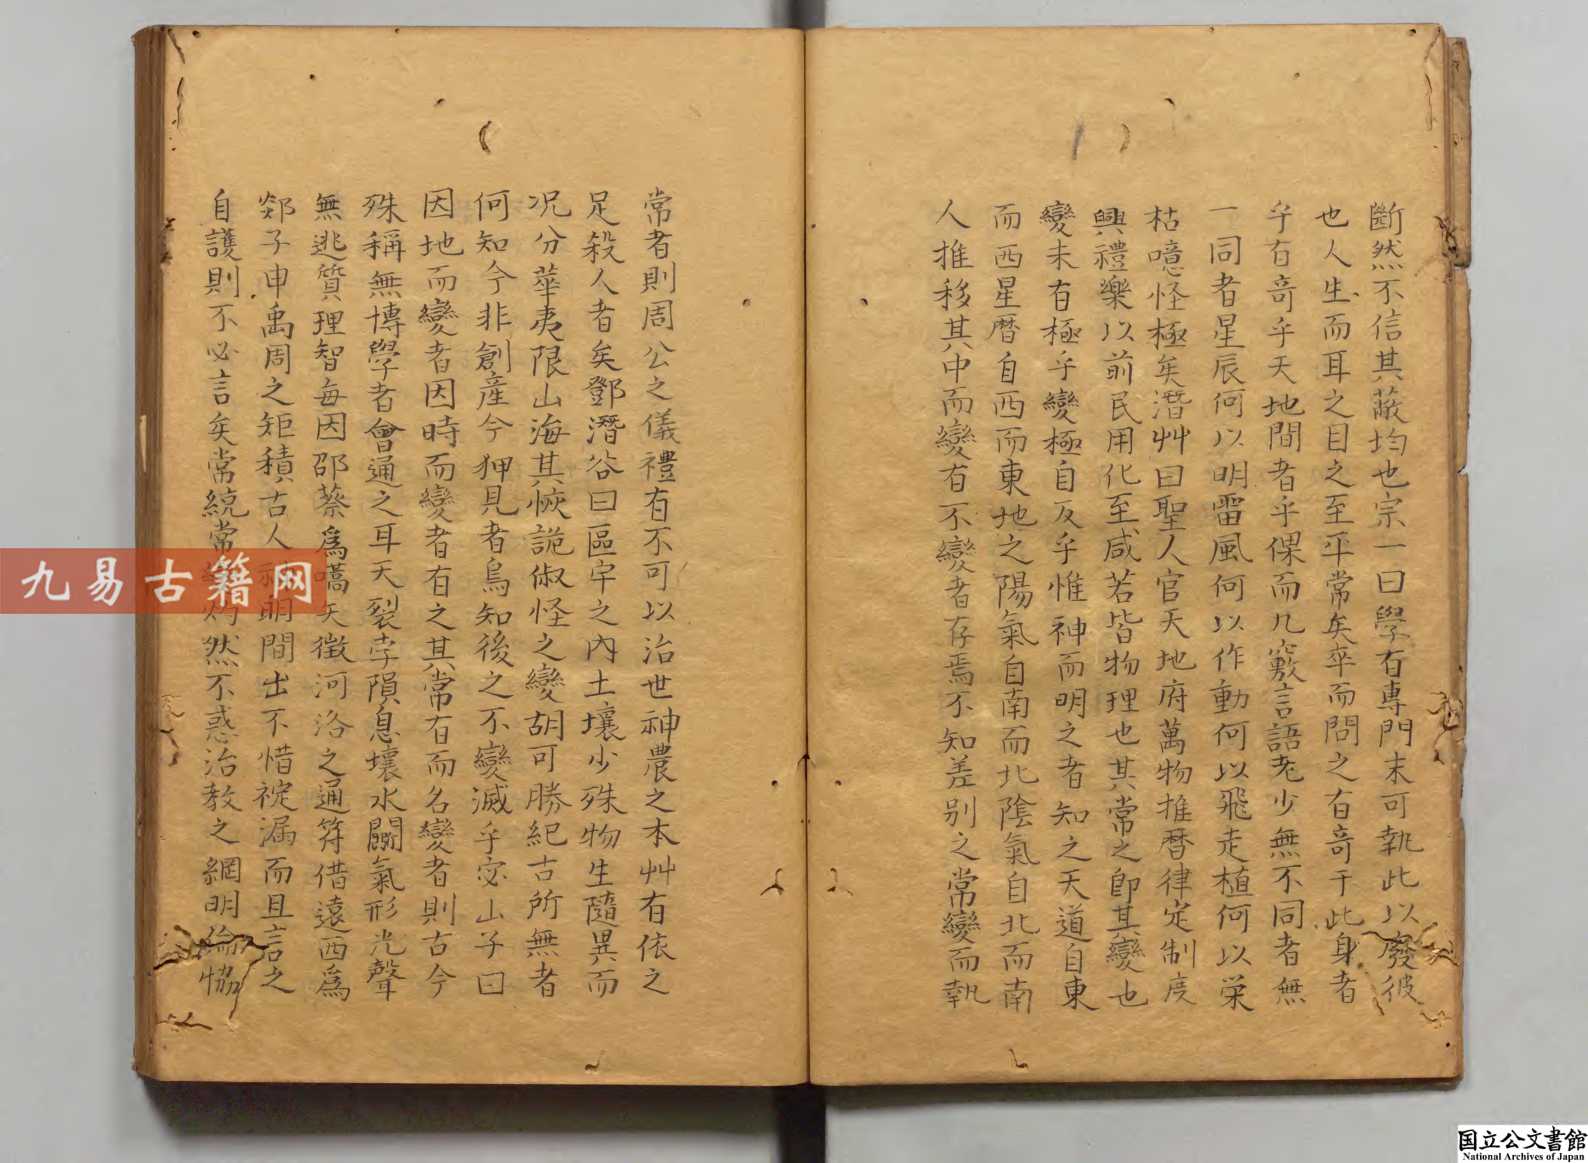 斷然不信其蔽均也宗一曰學有專門未可執此以廢彼
也人生而耳之目之至平常矣卒而問之有奇于此身者
乎有奇乎天地間者乎倮而几竅言語老少無不同者無
一同者星辰何以明雷風何以作動何以飛走植何以栄
枯噫怪極矣潛艸曰聖人官天地府萬物推曆律定制度
興禮樂以前民用化至咸若皆物理也其常之卽其變也
變未有極乎變極自反乎惟神而明之者知之天道自東
而西星曆自西而東地之陽氣自南而北陰氣自北而南
人推移其中而變有不變者存焉不知差别之常變而執
常者則周公之儀禮有不可以治世神農之本艸有依之
足殺人者矣鄧潛谷曰區宇之內土壤少殊物生隨異而
况分華夷限山海其恢詭俶怪之變胡可勝紀古所無者
何知今非創產今狎見者烏知後之不變滅乎宓山子曰
因地而變者因時而變者有之其常有而名變者則古今
殊稱無博學者會通之耳天裂孛隕息壤水鬭氣形光聲
無逃質理智每因邵蔡爲嚆矢徵河洛之通符借遠西爲
郯子申禹周之矩積古人神明間出不惜䘺漏而且言之
自護則不必言矣常統常變灼然不惑治教之綱明倫恊
九易古籍网
国立公文書館
National Archives of Japan